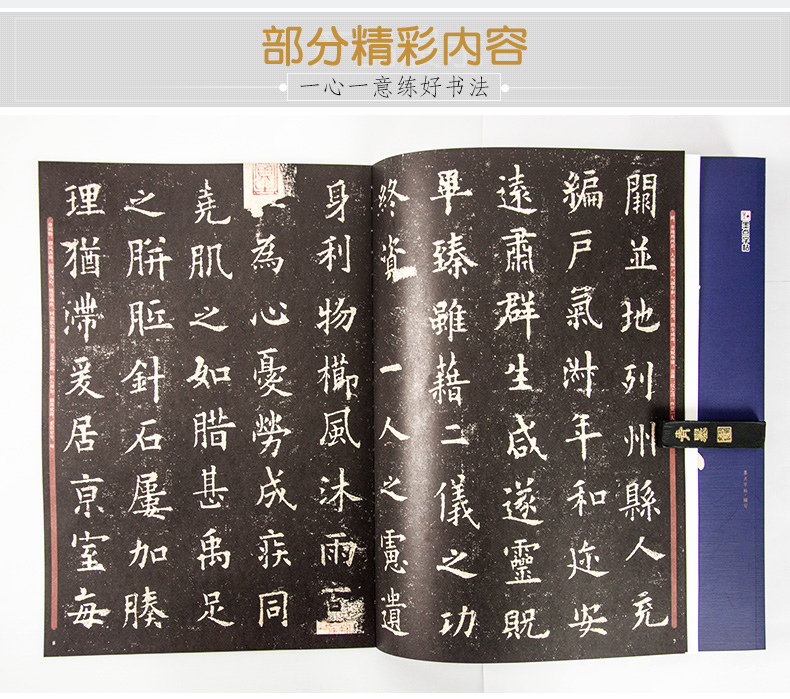 部分精彩内容
一心一意练好书法
闢並地列州縣人充
編戶氣淑年和迩安
遠肅群生咸遂靈貺
畢臻雖藉二儀之功
終資一人之慮遺
身利物櫛風沐雨百
為心憂勞成疾同
堯肌之如腊甚禹足
之胼胝針石屢加腠
理猶滯爰居亰室每
墨点字帖
7
8